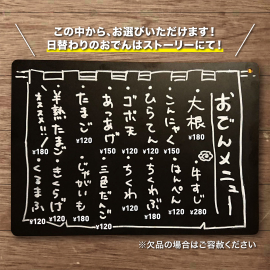 この中から、お選びいただけます！
日替わりのおでんはストーリーにて！
おでんメニュー
・大根 ¥180
・牛すじ ¥280
・こんにゃく ¥150
・はんぺん ¥120
・ひらてん ¥120
・ちくわぶ ¥180
・ゴボ天 ¥120
・ちくわ ¥120
・あつあげ ¥150
・三色だんご ¥120
・たまご ¥120
・じゃがいも ¥120
・半熟たまご ¥180
・きくらげ ¥120
オススメ!!
・くるまふ ¥120
※欠品の場合はご容赦ください